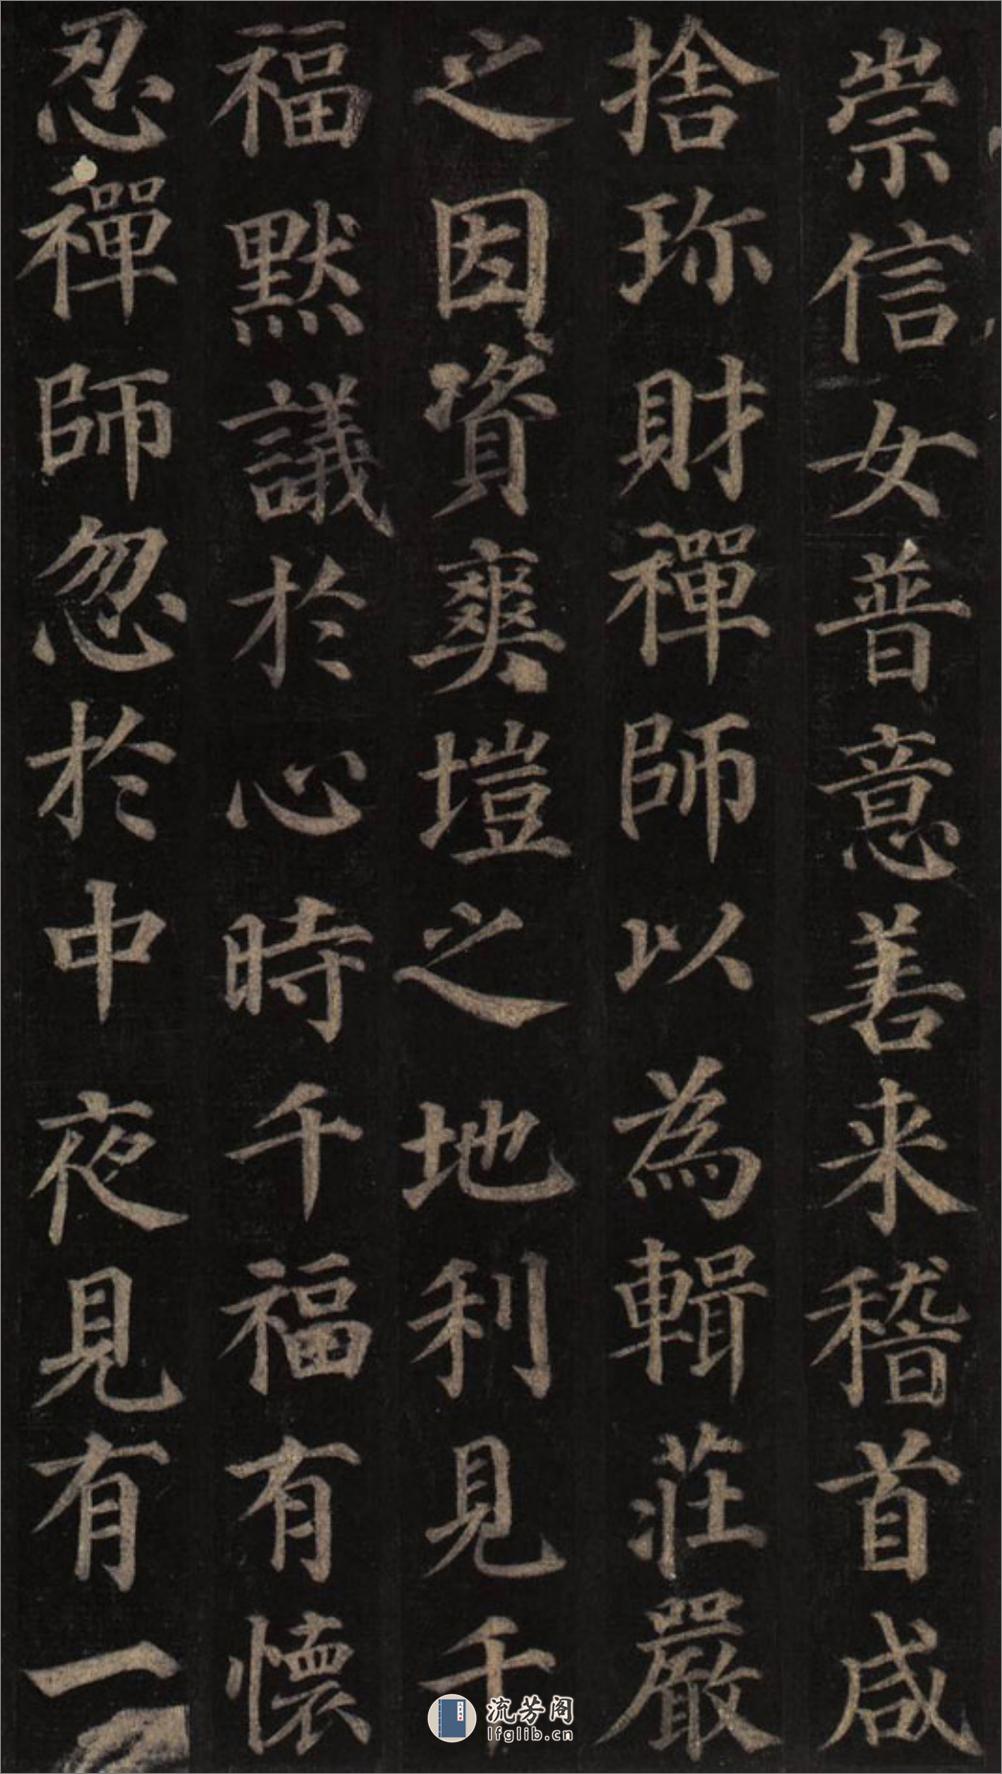 崇信女普意善来稽首咸
捨珎財禪師以為輯莊嚴
之因資爽塏之地利見千
福默議於心時千福有懷
忍禪師忽於中夜見有一
流芳阁
lfglib.cn